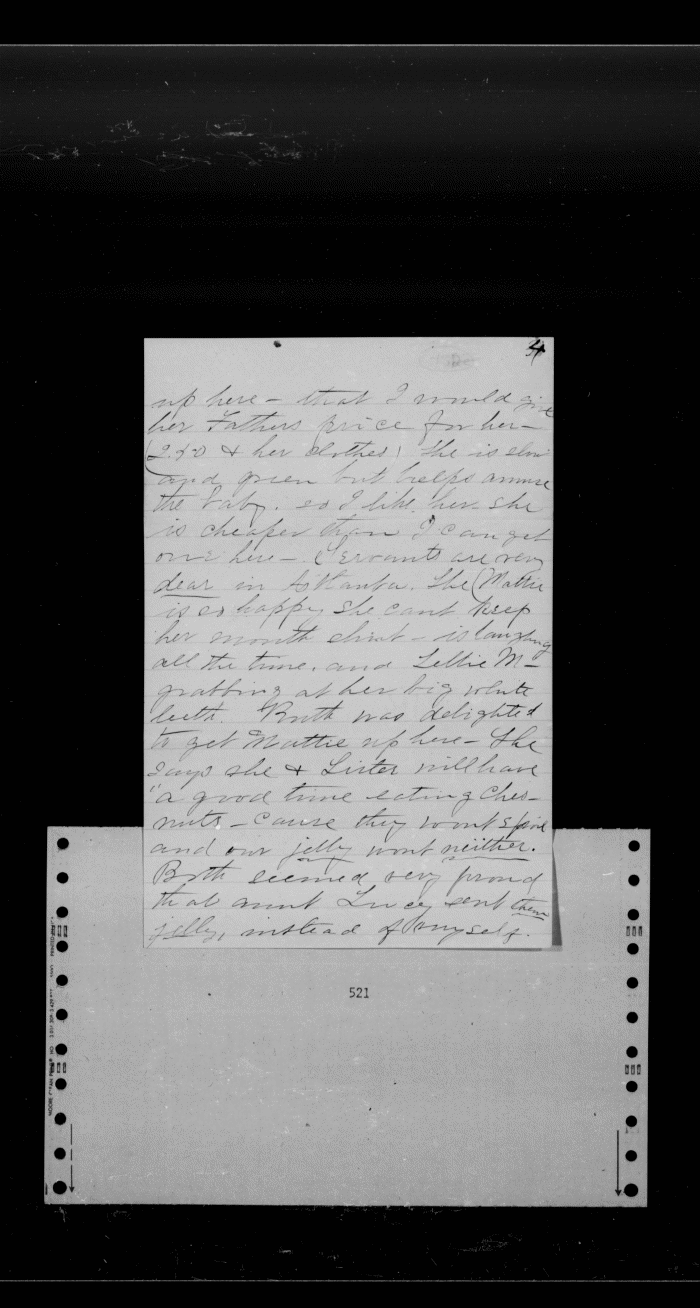 4
up here – that I would give
her Fathers price for her –
(2.50 & her clothes) She is slow
and green but helps amuse
the baby. so I like her. she
is cheaper than I can get
one here – Servants are very
dear in Atlanta. She (Mattie
is so happy she cant keep
her mouth shut – is laughing
all the time. and Lellie M –
grabbing at her big white
teeth. Ruth was delighted
to get Mattie up here – She
says she & Sister will have
"a good time eating Ches-
nuts – cause they wont spoil
and our jelly wont neither.
Both seemed very proud
that aunt Lucy sent them
jelly, instead of myself.
521